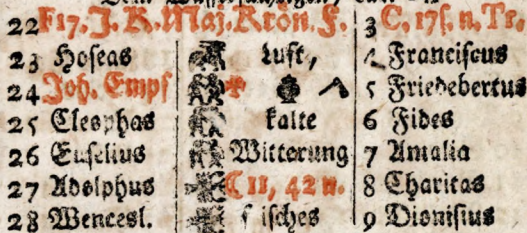 22 F 17. J. K. Maj. Kron. F. 3 C. 17 f. n. Tr.
23 Hoseas Luft, 4 Franciscus
24 Joh. Empf 5 Friedebertus
25 Cleophas kalte 6 Fides
26 Euselius Witterung 7 Amalia
27 Adolphus C 11, 42 n. 8 Charitas
28 Wencesl. isches 9 Dionisius